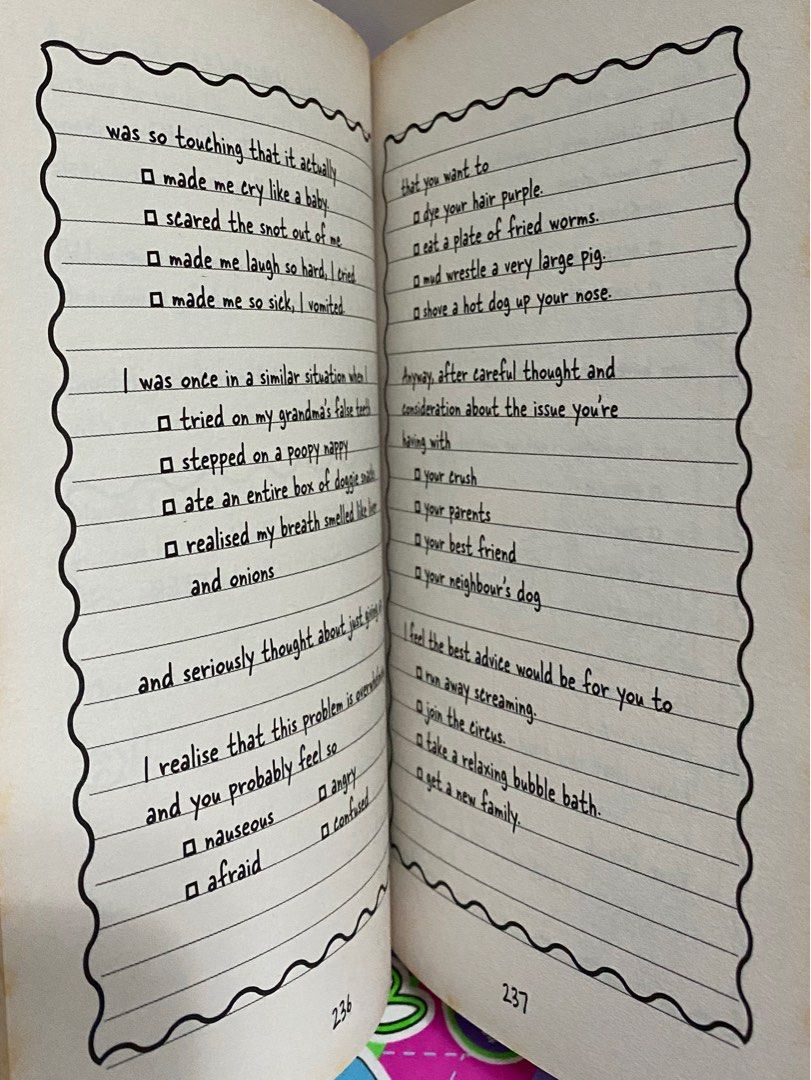 was so touching that it actually
□ made me cry like a baby.
□ scared the snot out of me.
□ made me laugh so hard, I cried.
□ made me so sick, I vomited.
I was once in a similar situation when I
□ tried on my grandma's false teeth
□ stepped on a poopy nappy
□ ate an entire box of doggie snacks
□ realised my breath smelled like liver
and onions
and seriously thought about just giving up
I realise that this problem is overwhelming
and you probably feel so
□ nauseous □ angry
□ afraid □ confused
236
that you want to
□ dye your hair purple.
□ eat a plate of fried worms.
□ mud wrestle a very large pig.
□ shove a hot dog up your nose.
Anyway, after careful thought and
consideration about the issue you're
having with
□ your crush
□ your parents
□ your best friend
□ your neighbour's dog
I feel the best advice would be for you to
□ run away screaming.
□ join the circus.
□ take a relaxing bubble bath.
□ get a new family.
237